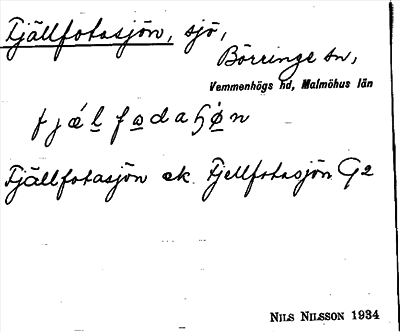 Fjällfotasjön, sjö,
Börringe sn,
Vemmenhögs hd, Malmöhus län
Fjällfotasjön ek. Fjellfotasjön G2
NILS NILSSON 1934